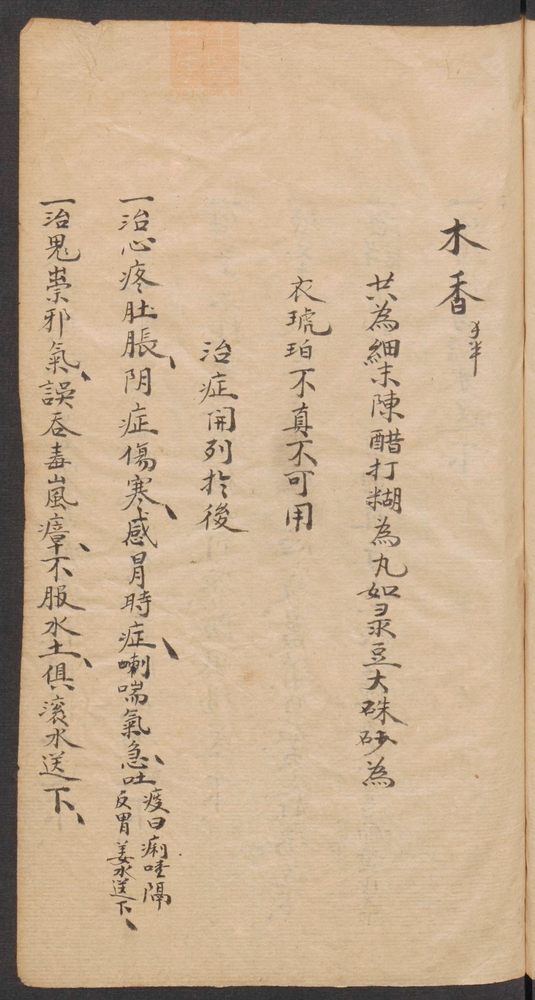 木香
共為細末陳醋打糊為丸如彔豆大硃砂為
衣琥珀不真不可用
治症開列於後
一治心疼肚脹、阴症傷寒、感冒時症、喇喘氣急、吐
疫日痢噎隔
反胃姜水送下、
一治鬼祟邪氣、誤吞毒、嵐瘴、不服水土、俱滚水送下、